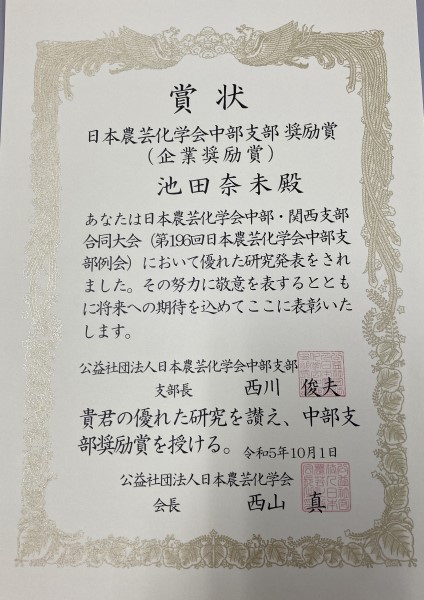 賞状
日本農芸化学会中部支部 奨励賞
(企業奨励賞)
池田奈未殿
あなたは日本農芸化学会中部・関西支部
合同大会(第196回日本農芸化学会中部支
部例会)において優れた研究発表をされ
ました。その努力に敬意を表するととも
に将来への期待を込めてここに表彰いた
します。
公益社団法人日本農芸化学会中部支部
支部長 西川 俊夫
貴君の優れた研究を讃え、中部支
部奨励賞を授ける。令和5年10月1日
公益社団法人日本農芸化学会
会長 西山 真